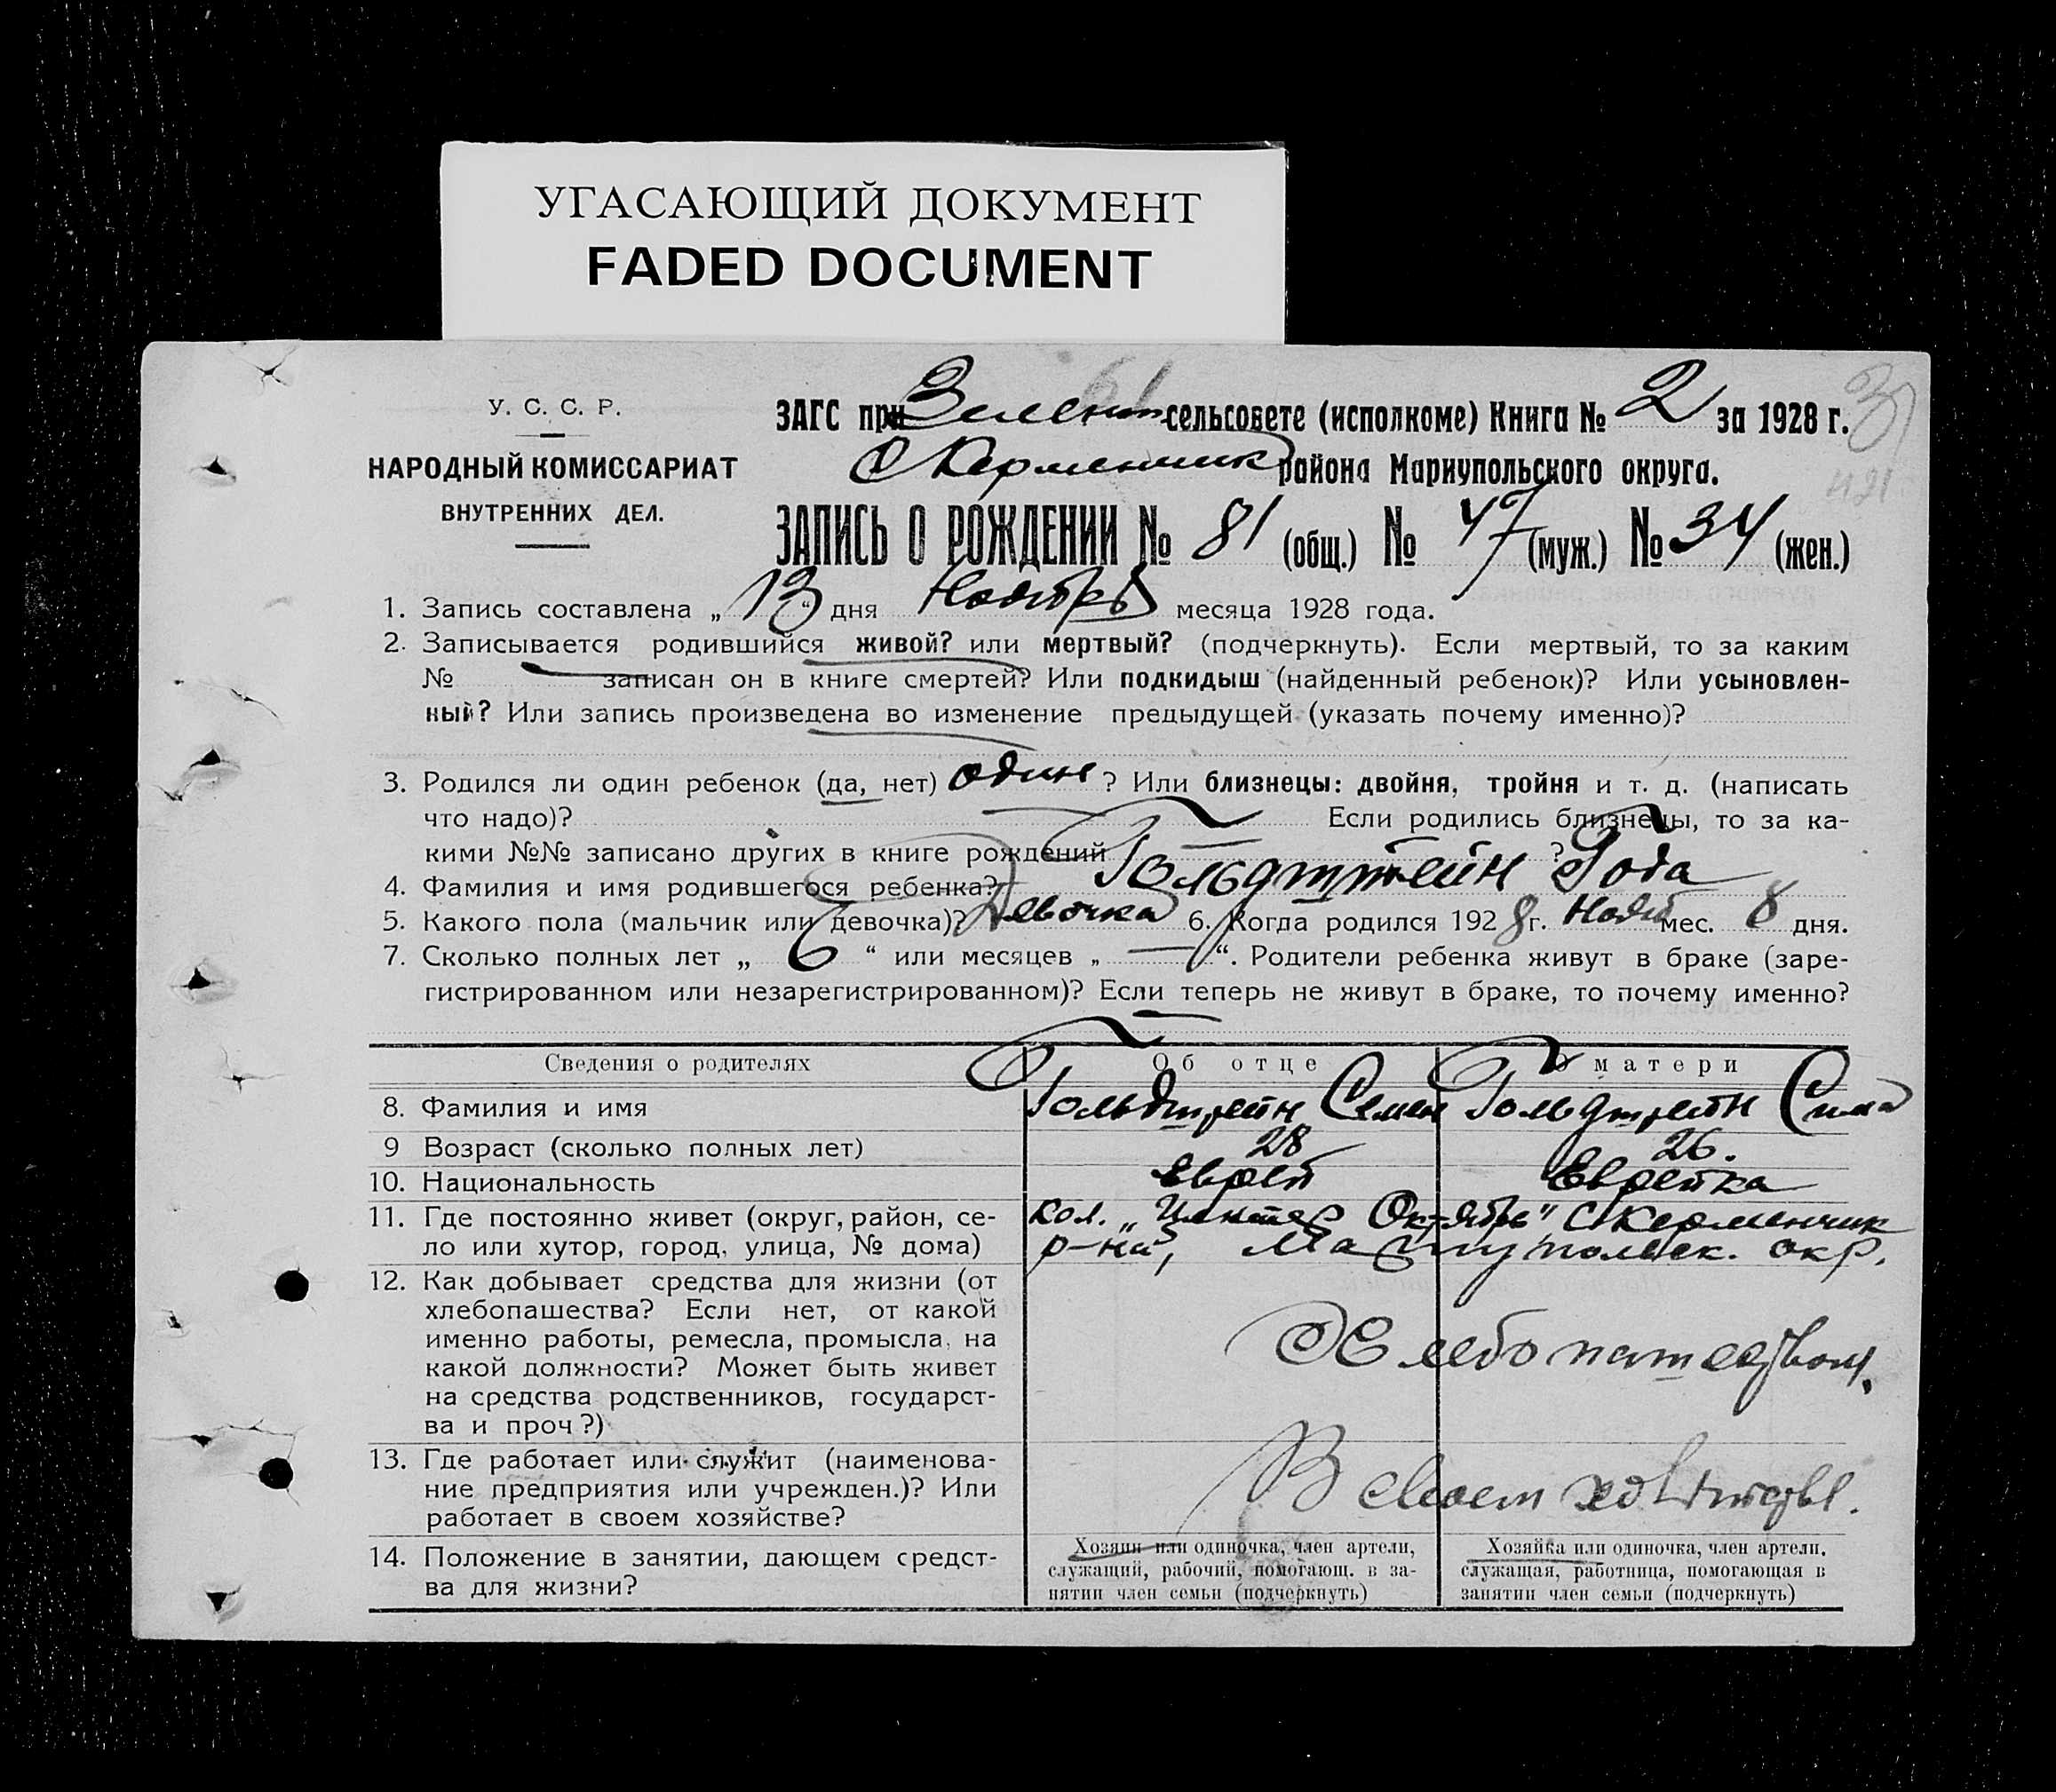 УГАСАЮЩИЙ ДОКУМЕНТ
FADED DOCUMENT
У. С. С. Р.
НАРОДНЫЙ КОМИССАРИАТ
ВНУТРЕННИХ ДЕЛ.
ЗАГС при Зелен сельсовете (исполкоме) Книга № 2 за 1928 г.
С Керменчик района Мариупольского округа.
ЗАПИСЬ О РОЖДЕНИИ № 81 (общ.) № 47 (муж.) № 34 (жен.)
1. Запись составлена „ 13 “ дня Ноября месяца 1928 года.
2. Записывается родившийся живой? или мертвый? (подчеркнуть). Если мертвый, то за каким
№ записан он в книге смертей? Или подкидыш (найденный ребенок)? Или усыновлен-
ный? Или запись произведена во изменение предыдущей (указать почему именно)?
3. Родился ли один ребенок (да, нет) один ? Или близнецы: двойня, тройня и т. д. (написать
что надо)? Если родились близнецы, то за ка-
кими №№ записано других в книге рождений ?
4. Фамилия и имя родившегося ребенка? Гольдштейн Рода
5. Какого пола (мальчик или девочка)? Девочка 6. Когда родился 1928 г. Нояб мес. 8 дня.
7. Сколько полных лет „ 6 “ или месяцев „ — “. Родители ребенка живут в браке (заре-
гистрированном или незарегистрированном)? Если теперь не живут в браке, то почему именно?
Сведения о родителях Об отце О матери
8. Фамилия и имя Гольдштейн Семен Гольдштейн Сима
9 Возраст (сколько полных лет) 28 26.
10. Национальность Еврей Еврейка
11. Где постоянно живет (округ, район, се- кол. „ Октябрь" С Керменчик
ло или хутор, город, улица, № дома) р-на, Мариупольск. окр.
12. Как добывает средства для жизни (от
хлебопашества? Если нет, от какой
именно работы, ремесла, промысла, на Хлебопашеством.
какой должности? Может быть живет
на средства родственников, государст-
ва и проч?)
13. Где работает или служит (наименова-
ние предприятия или учрежден.)? Или В своем хозяйстве.
работает в своем хозяйстве?
14. Положение в занятии, дающем средст-
ва для жизни?
Хозяин или одиночка, член артели,
служащий, рабочий, помогающ. в за-
нятии член семьи (подчеркнуть)
Хозяйка или одиночка, член артели,
служащая, работница, помогающая в
занятии член семьи (подчеркнуть)